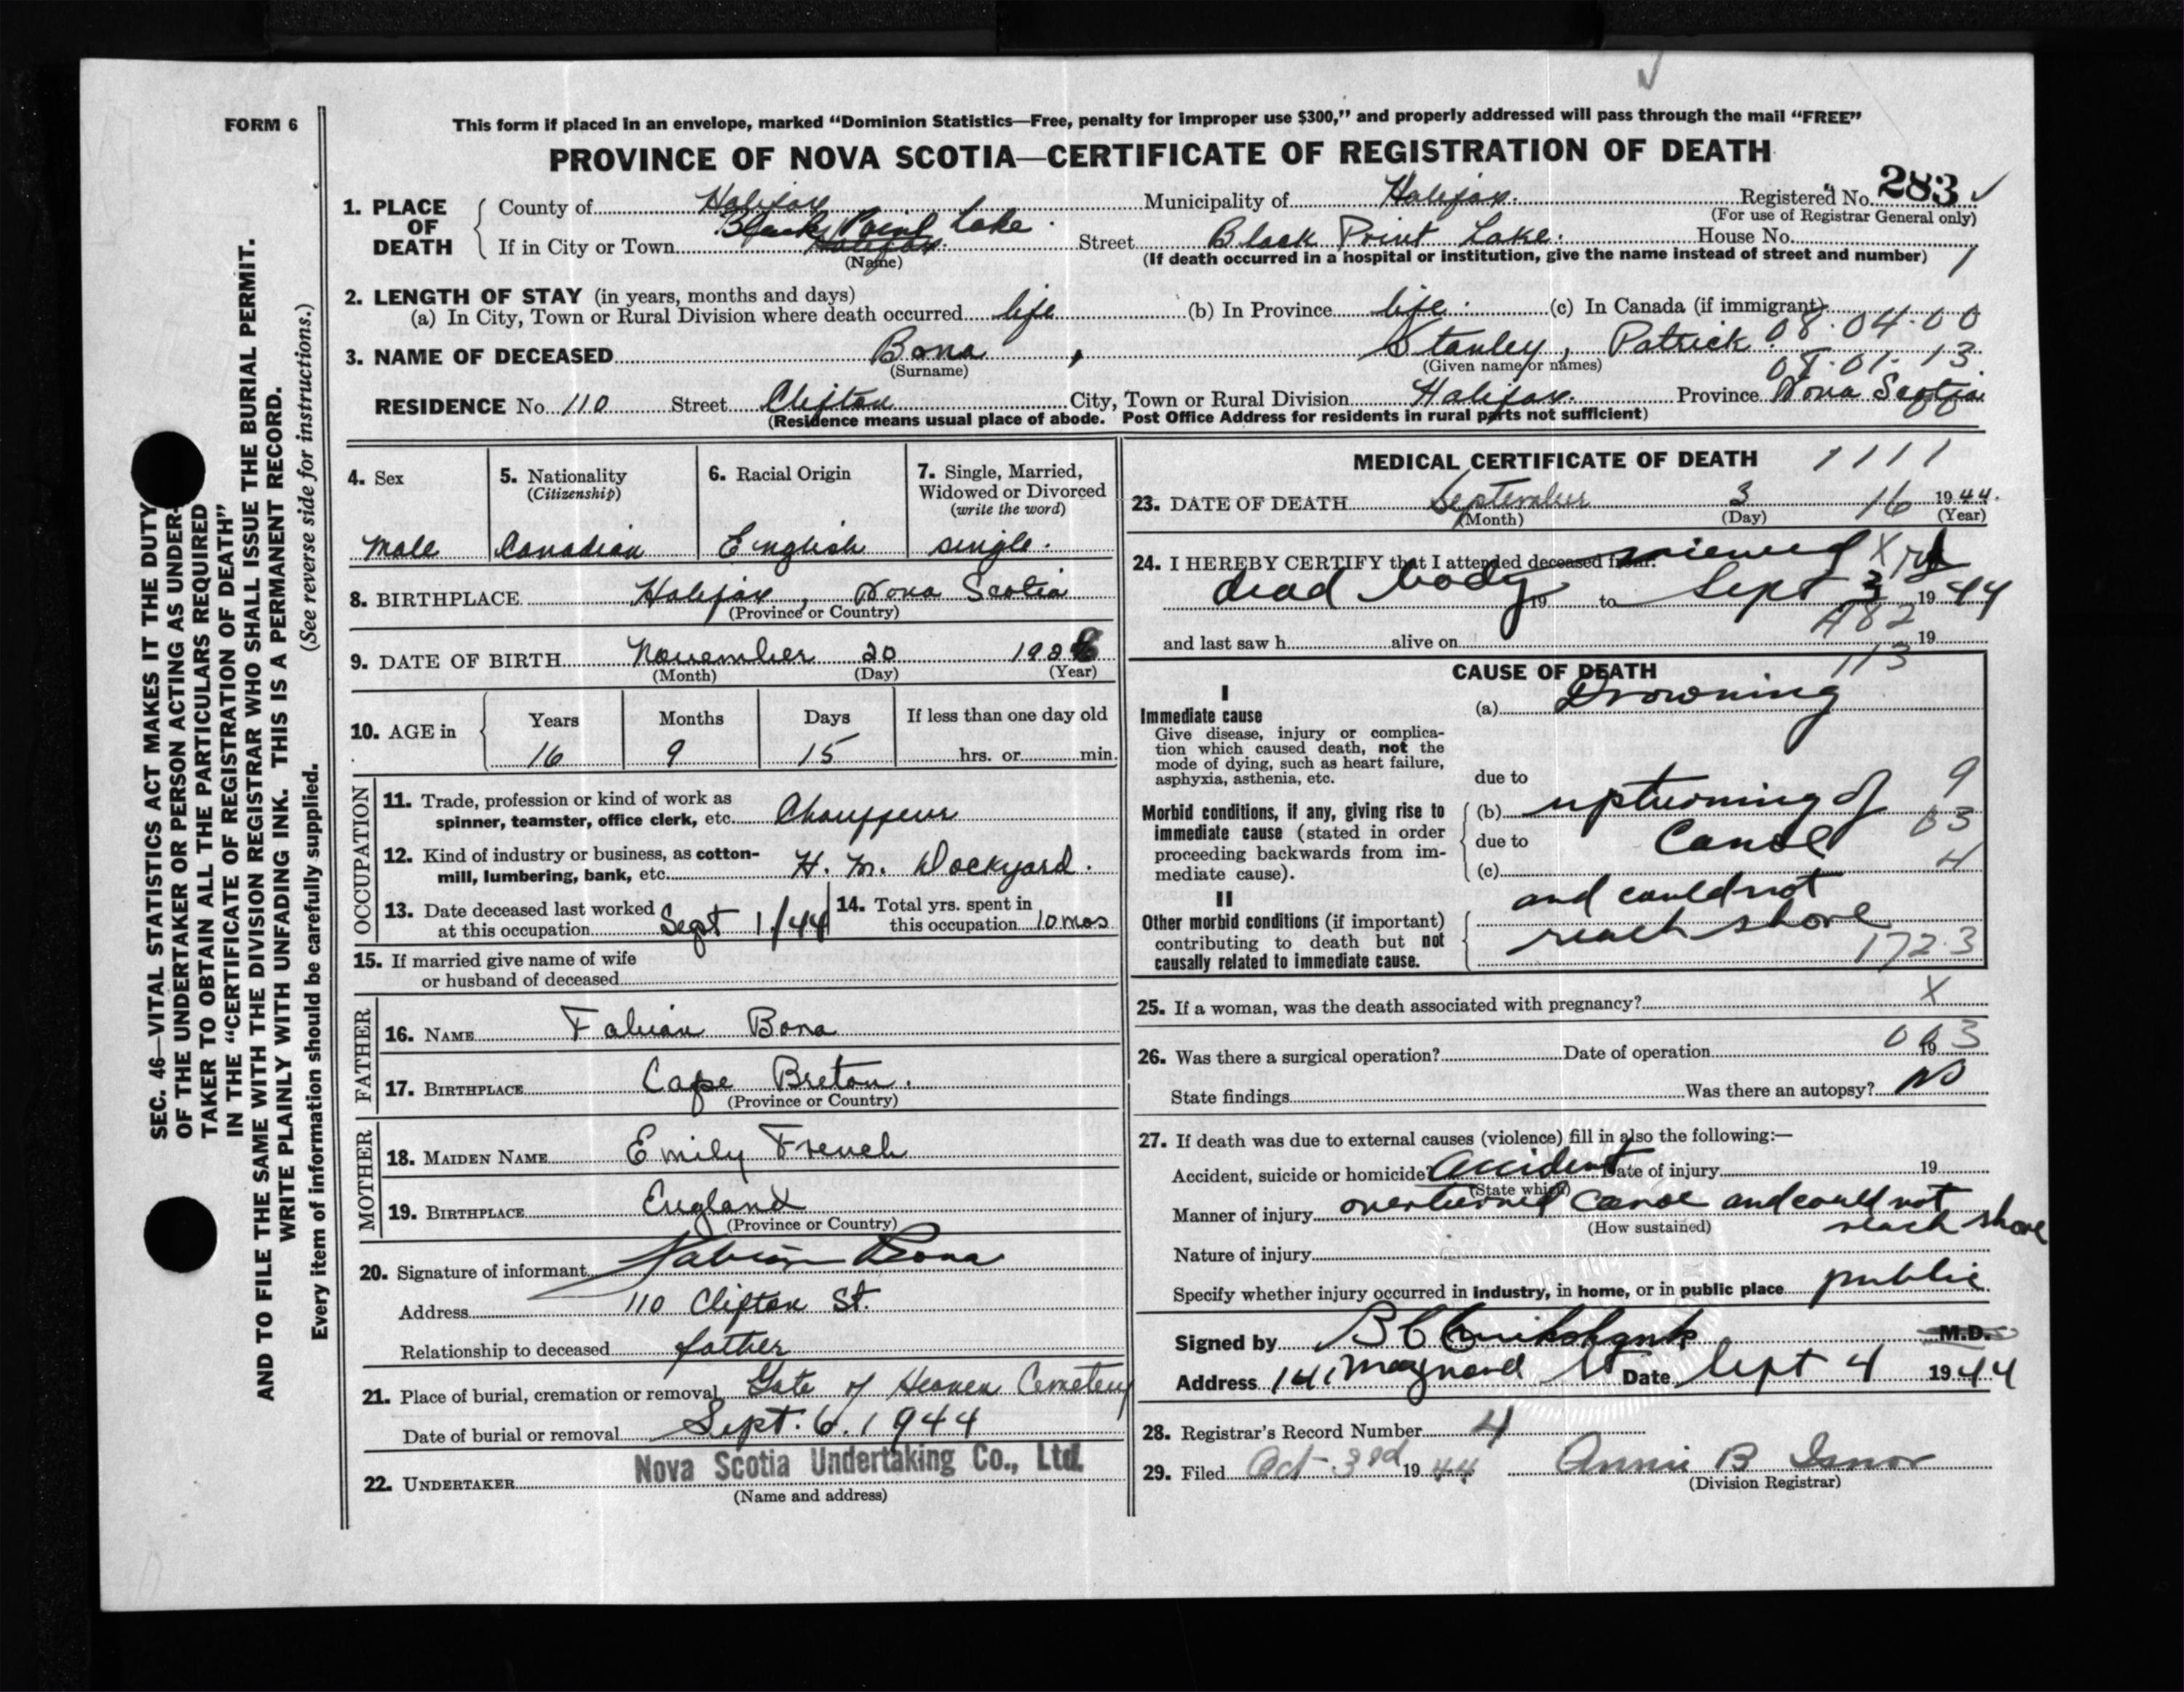 FORM 6
This form if placed in an envelope, marked “Dominion Statistics—Free, penalty for improper use $300,” and properly addressed will pass through the mail “FREE”
PROVINCE OF NOVA SCOTIA—CERTIFICATE OF REGISTRATION OF DEATH
1. PLACE OF DEATH
County of Halifax Municipality of Halifax. Registered No. 283
(For use of Registrar General only)
If in City or Town Black Point Lake Halifax. Street Black Point Lake. House No.
(Name) (If death occurred in a hospital or institution, give the name instead of street and number) 1
2. LENGTH OF STAY (in years, months and days)
(a) In City, Town or Rural Division where death occurred life (b) In Province life. (c) In Canada (if immigrant)
08.04.00
3. NAME OF DECEASED Bona , Stanley, Patrick.
(Surname) (Given name or names) 08.01.13
RESIDENCE No. 110 Street Clifton City, Town or Rural Division Halifax. Province Nova Scotia
(Residence means usual place of abode. Post Office Address for residents in rural parts not sufficient)
SEC. 46—VITAL STATISTICS ACT MAKES IT THE DUTY
OF THE UNDERTAKER OR PERSON ACTING AS UNDER-
TAKER TO OBTAIN ALL THE PARTICULARS REQUIRED
IN THE “CERTIFICATE OF REGISTRATION OF DEATH”
AND TO FILE THE SAME WITH THE DIVISION REGISTRAR WHO SHALL ISSUE THE BURIAL PERMIT.
WRITE PLAINLY WITH UNFADING INK. THIS IS A PERMANENT RECORD.
Every item of information should be carefully supplied. (See reverse side for instructions.)
4. Sex
5. Nationality
(Citizenship)
6. Racial Origin
7. Single, Married,
Widowed or Divorced
(write the word)
Male Canadian English single.
8. BIRTHPLACE Halifax, Nova Scotia
(Province or Country)
9. DATE OF BIRTH November 20 192
(Month) (Day) (Year)
10. AGE in Years Months Days If less than one day old
16 9 15 hrs. or min.
OCCUPATION
11. Trade, profession or kind of work as
spinner, teamster, office clerk, etc. Chauffeur
12. Kind of industry or business, as cotton-
mill, lumbering, bank, etc. H. M. Dockyard.
13. Date deceased last worked
at this occupation Sept 1/44
14. Total yrs. spent in
this occupation 10 mos
15. If married give name of wife
or husband of deceased
FATHER
16. NAME Fabian Bona
17. BIRTHPLACE Cape Breton.
(Province or Country)
MOTHER
18. MAIDEN NAME Emily French
19. BIRTHPLACE England
(Province or Country)
20. Signature of informant Fabian Bona
Address 110 Clifton St.
Relationship to deceased father
21. Place of burial, cremation or removal Gate of Heaven Cemetery
Date of burial or removal Sept. 6. 1944
22. UNDERTAKER Nova Scotia Undertaking Co., Ltd.
(Name and address)
MEDICAL CERTIFICATE OF DEATH 1111
23. DATE OF DEATH September 3 16 1944.
(Month) (Day) (Year)
24. I HEREBY CERTIFY that I attended deceased from: viewed X
dead body 19 to Sept 3 1944
482
and last saw h alive on 19
113
CAUSE OF DEATH
I
Immediate cause
Give disease, injury or complica-
tion which caused death, not the
mode of dying, such as heart failure,
asphyxia, asthenia, etc.
(a) Drowning
due to
Morbid conditions, if any, giving rise to
immediate cause (stated in order
proceeding backwards from im-
mediate cause).
(b) upturning of 9
due to Canoe 03
(c) 4
and could not
II
Other morbid conditions (if important)
contributing to death but not
causally related to immediate cause.
reach shore
172.3
25. If a woman, was the death associated with pregnancy? X
26. Was there a surgical operation? Date of operation 19
003
State findings Was there an autopsy? no
27. If death was due to external causes (violence) fill in also the following:—
Accident, suicide or homicide? accident Date of injury 19
(State which)
Manner of injury overturned canoe and could not
(How sustained) reach shore
Nature of injury
Specify whether injury occurred in industry, in home, or in public place public
Signed by M.D.
Address 141 Maynard St Date Sept 4 1944
28. Registrar’s Record Number 4
29. Filed Oct. 3rd 1944 Annie B Isnor
(Division Registrar)